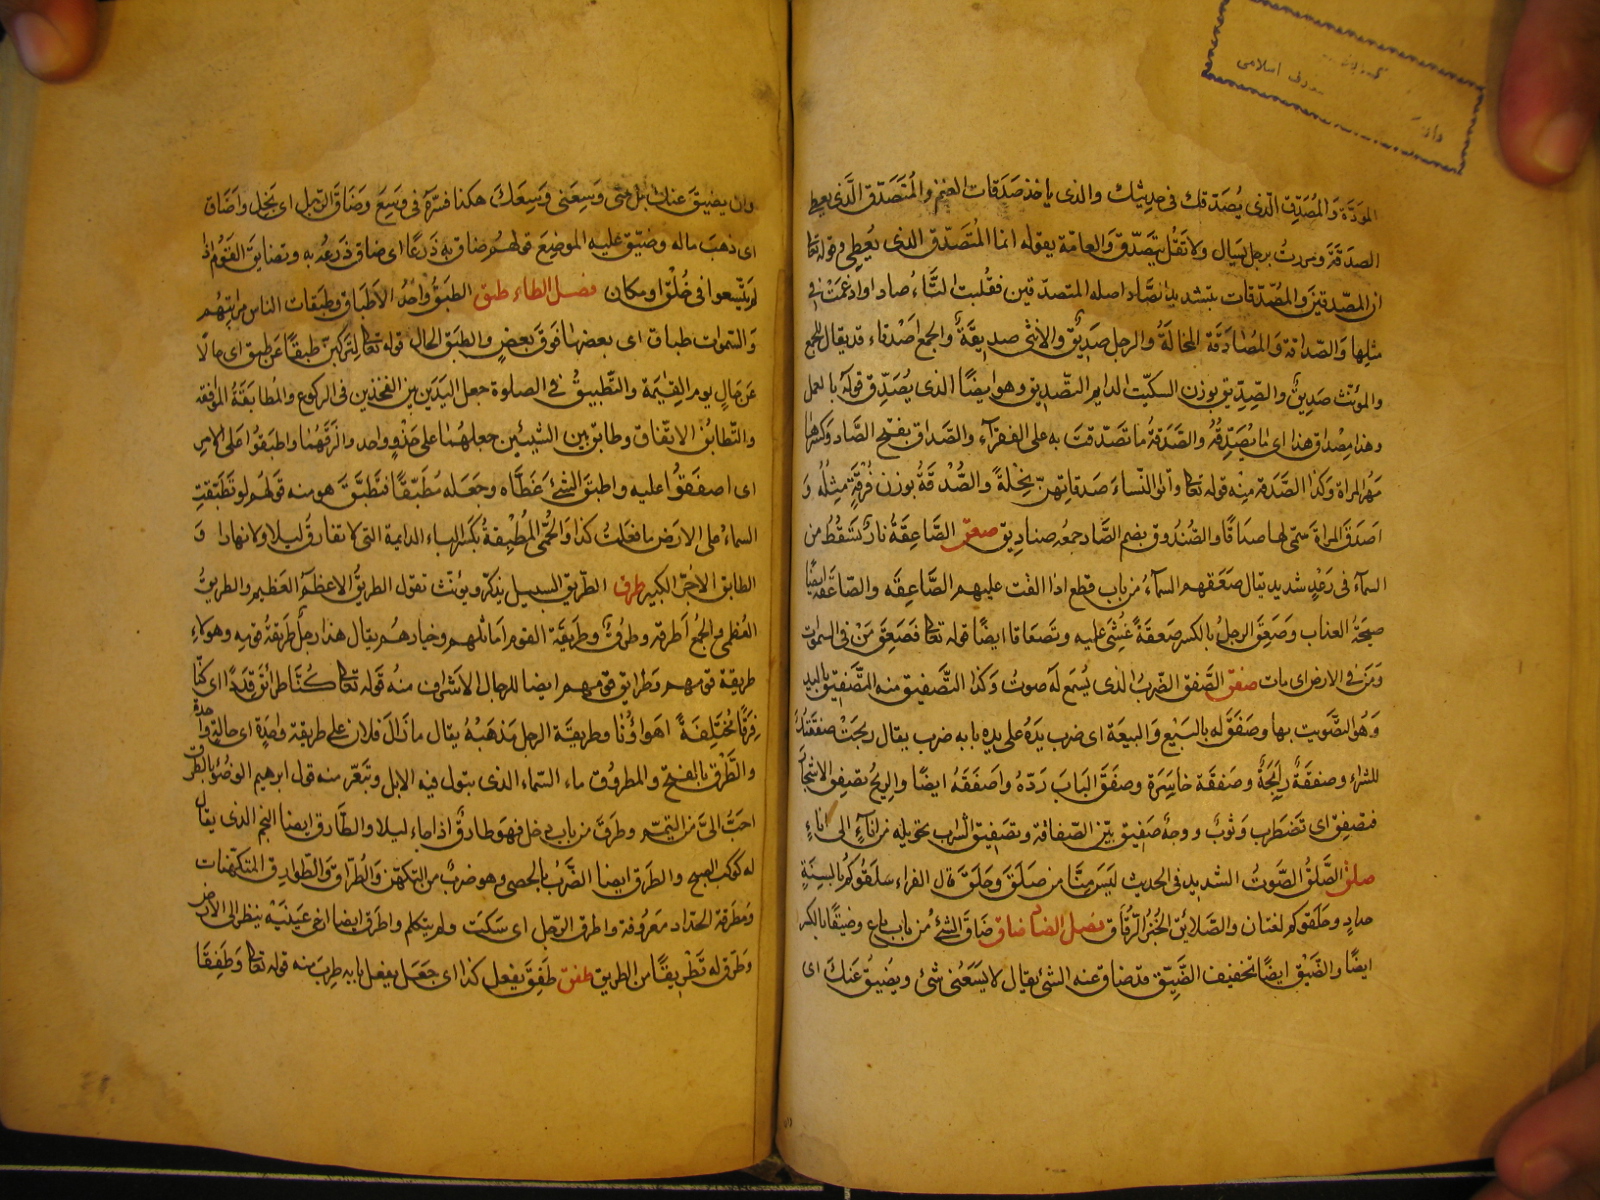 المودة والمصدق الذى يصدقك فى حديثك والذى ياخذ صدقات الغنم والمتصدق الذى يعطى
الصدقة ومررت برجل يسال ولا تقل يتصدق والعامة يقوله انما المتصدق الذى يعطى وقوله تعا
ان المصدقين والمصدقات بتشديد الصاد اصله المتصدقين فقلبت التاء صادا وادغمت فى
مثلها والصداقة والمصادقة المخالة والرجل صديق والانثى صديقة والجمع اصدقاء قد يقال للجمع
والمونث صديق والصديق بوزن السكيت الدايم التصديق وهو ايضا الذى يصدق قوله بالعمل
وهذا مصداق هذا اى ما يصدقه والصدقة ما تصدقت به على الفقراء والصداق بفتح الصاد وكسرها
مهر المراة وكذا الصدقة منه قوله تعا وآتوا النساء صدقاتهن نحلة والصدقة بوزن فرقة مثله و
اصدق المراة سمى لها صداقا والصندوق بضم الصاد جمعه صناديق صعق الصاعقة نار تسقط من
السماء فى رعد شديد يقال صعقهم السماء من باب قطع اذا القت عليهم الصاعقه والصاعقه ايضا
صيحة العذاب وصعق الرجل بالكسر صعقة غشى عليه وتصعاقا ايضا قوله تعا فصعق من فى السموات
ومن فى الارض اى مات صفق الصفق الضرب الذى يسمع له صوت وكذا التصفيق منه التصفيق باليد
وهو التصويت بها وصفق له بالبيع والبيعة اى ضرب يده على يده بابه ضرب يقال ربحت صفقتك
للشراء وصفقة رابحة وصفقة خاسرة وصفق الباب رده واصفقه ايضا والريح تصفق الاشجار
فتصفق اى تضطرب وثوب ووجه صفيق بين الصفاقة وتصفيق الشرب تحويله من اناء الى اناء
صلق الصلق الصوت الشديد فى الحديث ليس منا من صلق وحلق قال الفراء سلقوكم بالسنة
حداد وصلقوكم لغتان والصلايق الخبز الرقاق فصل الضاد ضاق ضاق الشئ من باب باع وضيقا بالكسر
ايضا والضيق ايضا تخفيف الضيق قد ضاق عنه الشئ يقال لا يسعنى شئ ويضيق عنك اى
وان يضيق عنك بل متى وسعنى وسعك هكذا فسره فى وسع وضاق الرجل اى بخل واضاق
اى ذهب ماله وضيق عليه الموضع قولهم ضاق به ذرعا اى ضاق ذرعه به وتضايق القوم اذا
لم يتسعوا فى خلق او مكان فصل الطاء طبق الطبق واحد الاطباق وطبقات الناس مراتبهم
والسموات طباق اى بعضها فوق بعض والطبق الحال قوله تعا لتركبن طبقا عن طبق اى حالا
عن حال يوم القيمة والتطبيق فى الصلوة جعل اليدين بين الفخذين فى الركوع والمطابقة الموافقه
والتطابق الاتفاق وطابق بين الشيئين جعلهما على حذو واحد والزقهما واطبقوا على الامر
اى اصفقوا عليه واطبق الشئ غطاه وجعله مطبقا فتطبق هو منه قولهم لو تطبقت
السماء على الارض ما فعلت كذا والحمى المطبقة بكسر الباء الدايمة التى لا تفارق ليلا ولا نهارا و
الطابق الآجر الكبير طرق الطريق السبيل يذكر ويونث تقول الطريق الاعظم العظيم والطريق
العظمى والجمع اطرقه وطرق وطريقة القوم اماثلهم وخيارهم يقال هذا رجل طريقة قومه وهولاء
طريقة قومهم وطرايق قومهم ايضا للرجال الاشراف منه قوله تعا كنا طرائق قددا اى كنا
فرقا مختلفة اهواؤنا وطريقة الرجل مذهبه يقال ما زال فلان على طريقة واحدة اى حالة واحدة
والطرق بالفتح والمطروق ماء السماء الذى تبول فيه الابل وتبعر منه قول ابرهيم الوضوء بالطرق
احب الى من التيمم وطرق من باب دخل فهو طارق اذا جاء ليلا والطارق ايضا النجم الذى يقال
له كوكب الصبح والطرق ايضا الضرب بالحصى وهو ضرب من التكهن والطراق والطوارق المتكهنات
ومطرقة الحداد معروفة واطرق الرجل اى سكت ولم يتكلم واطرق ايضا ارخى عينيه ينظر الى الارض
وطرق له تطريقا من الطريق طفق طفق يفعل كذا اى جعل يفعل بابه طرب منه قوله تعا وطفقا